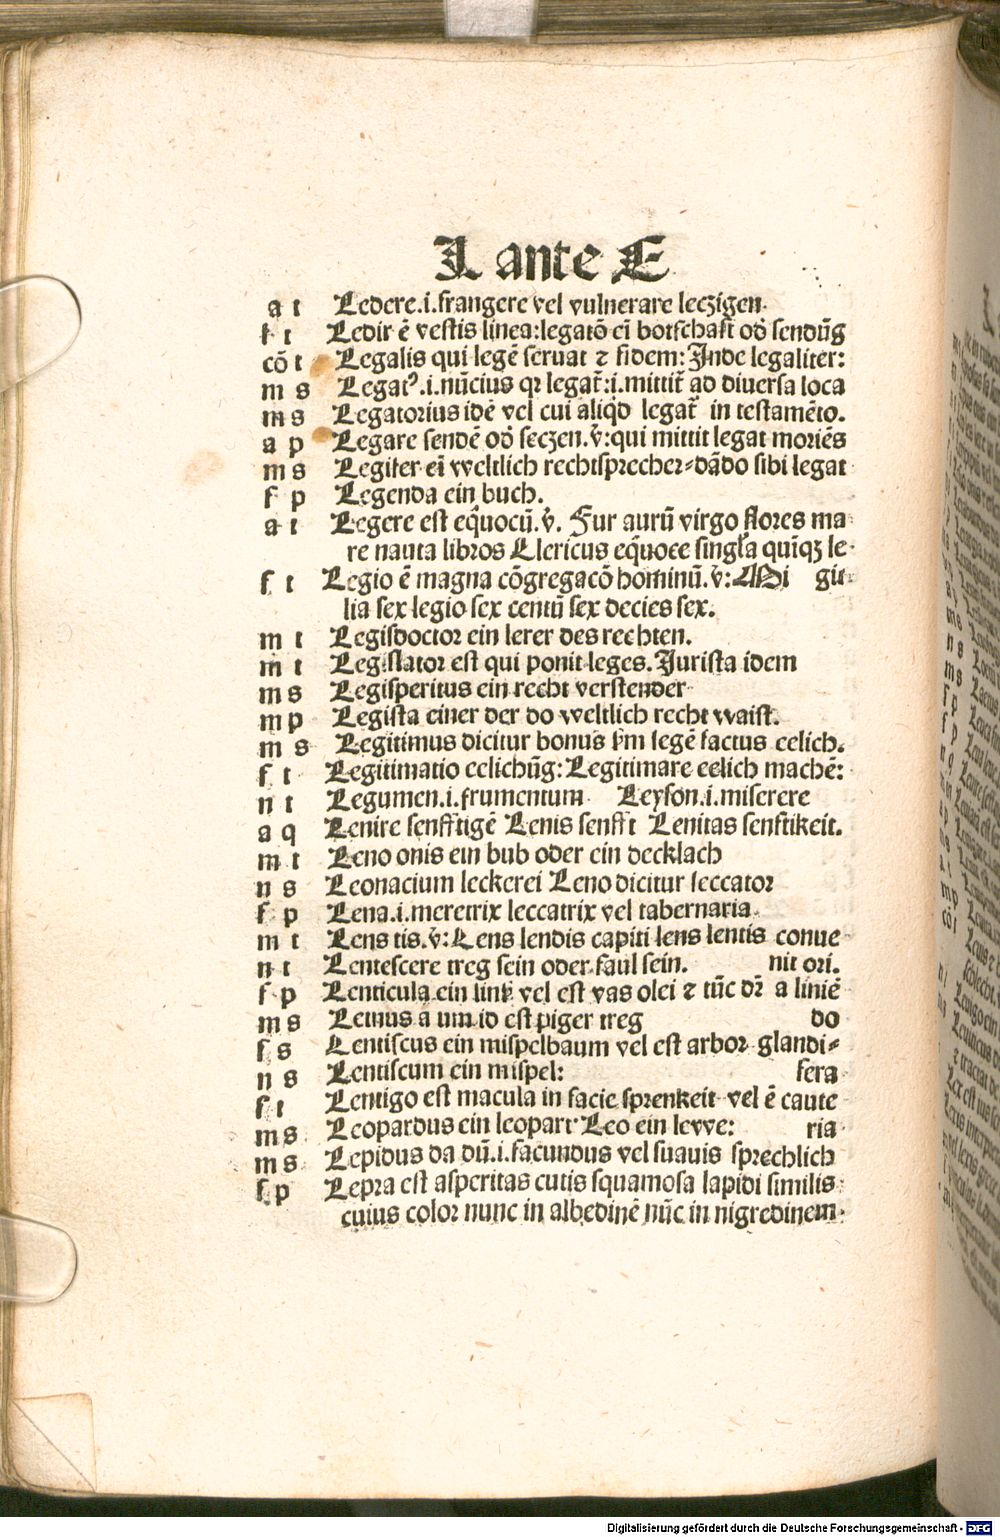 L ante E
a t Ledere.i.frangere vel vulnerare leczigen.
f t Ledir ē vestis linea:legatō eī botschaft od̕ sendūg
cō t Legalis qui legē seruat ⁊ fidem:Inde legaliter:
m s Legatꝰ.i.nūcius qr legat̄:i.mittit̄ ad diuersa loca
m s Legatorius idē vel cui aliqd legat̄ in testamēto.
a p Legare sendē od̕ seczen.v̄:qui mittit legat moriēs
m s Legiter eī weltlich rechtsprecher⸗dādo sibi legat
f p Legenda ein buch.
a t Legere est eq̄uocū.v̄. Fur aurū virgo flores ma
re nauta libros Clericus eq̄uoce singl̄a quīqꝫ le⸗
f t Legio ē magna cōgregacō hominū.v̄: Mi git
lia sex legio sex centū sex decies sex.
m t Legisdoctor ein lerer des rechten.
m t Legislator est qui ponit leges.Jurista idem
m s Legisperitus ein recht verstender
m p Legista einer der do weltlich recht waist.
m s Legitimus dicitur bonus s̄m legē factus eelich.
f t Legitimatio eelichūg:Legitimare eelich machē:
n t Legumen.i.frumentum Leyson.i.miserere
a q Lenire senfftigē Lenis senfft Lenitas senftikeit.
m t Leno onis ein bub oder ein decklach
n s Leonacium leckerei Leno dicitur leccator
f p Lena.i.meretrix leccatrix vel tabernaria
m t Lens tis.v̄:Lens lendis capiti lens lentis conue
n t Lentescere treg sein oder faul sein. nit ori.
f p Lenticula ein link vel est vas olei ⁊ tūc dr̄ a liniē
m s Letnus a um id est piger treg do
f s Lentiscus ein mispelbaum vel est arbor glandi⸗
n s Lentiscum ein mispel: fera
f t Lentigo est macula in facie sprenkeit vel ē caute
m s Leopardus ein lepart Leo ein lewe: ria
m s Lepidus da dū.i.facundus vel suauis sprechlich
f p Lepra est asperitas cutis squamosa lapidi similis
cuius color nunc in albedinē nūc in nigredinem
Digitalisierung gefördert durch die Deutsche Forschungsgemeinschaft - DFG